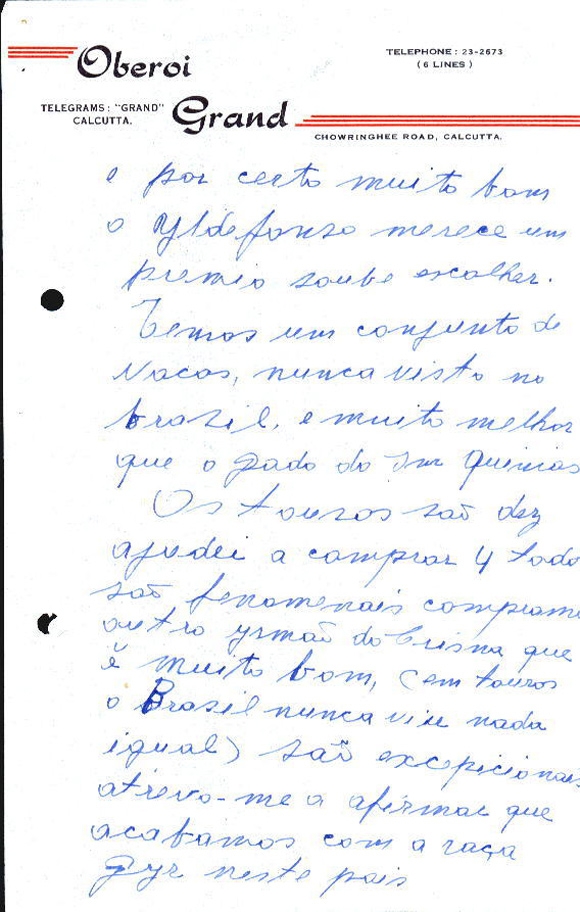 Oberoi
Grand
TELEPHONE : 23-2673
( 6 LINES )
TELEGRAMS : "GRAND"
CALCUTTA.
CHOWRINGHEE ROAD, CALCUTTA.
e por certo muito bom
o Yldefonso merece um
premio soube escolher.
Temos um conjunto de
Vacas, nunca visto no
brazil, e muito melhor
que o gado do
Os touros são dez
ajudei a comprar 4 todo
são fenomenais compramo
outro yrmão do Crisna que
é muito bom, (em touros
o Brasil nunca viu nada
igual) são excepicionais
atrevo-me a afirmar que
acabamos com a raça
Gyr neste pais